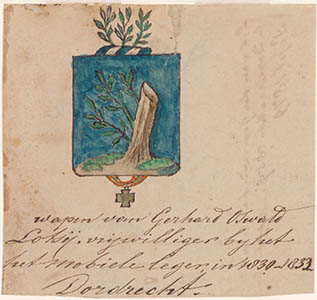 wapen van Gerhard Oswald
Lotsij. vrijwilliger by het
het mobiele leger in 1830_1832
Dordrecht.